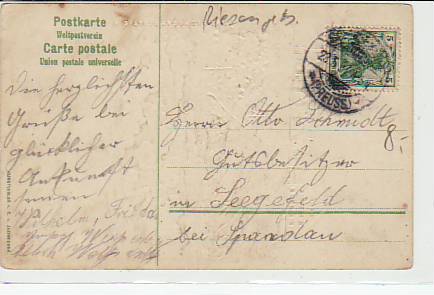 Postkarte
Weltpostverein
Carte postale
Union postale universelle
Riesengeb.
5
5
(PREUSS.)
Die herzlichsten
Grüße bei
glücklicher
Ankunft
senen
Wilhelm, Frieda
Herrn Otto Schmidt
Gutsbesitzer
in Seegefeld
bei Spandau
8.-